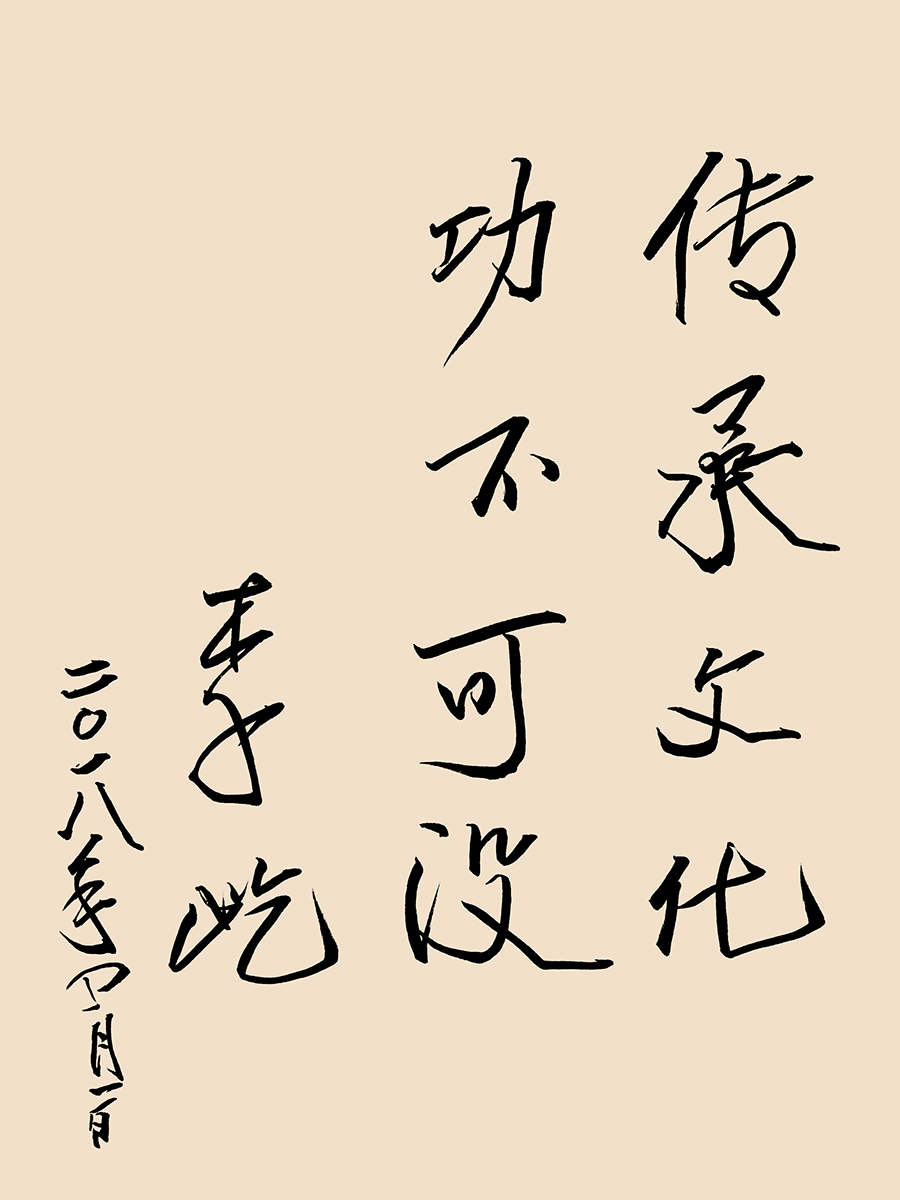 传承文化
功不可没
李屹
二〇一八年四月一日